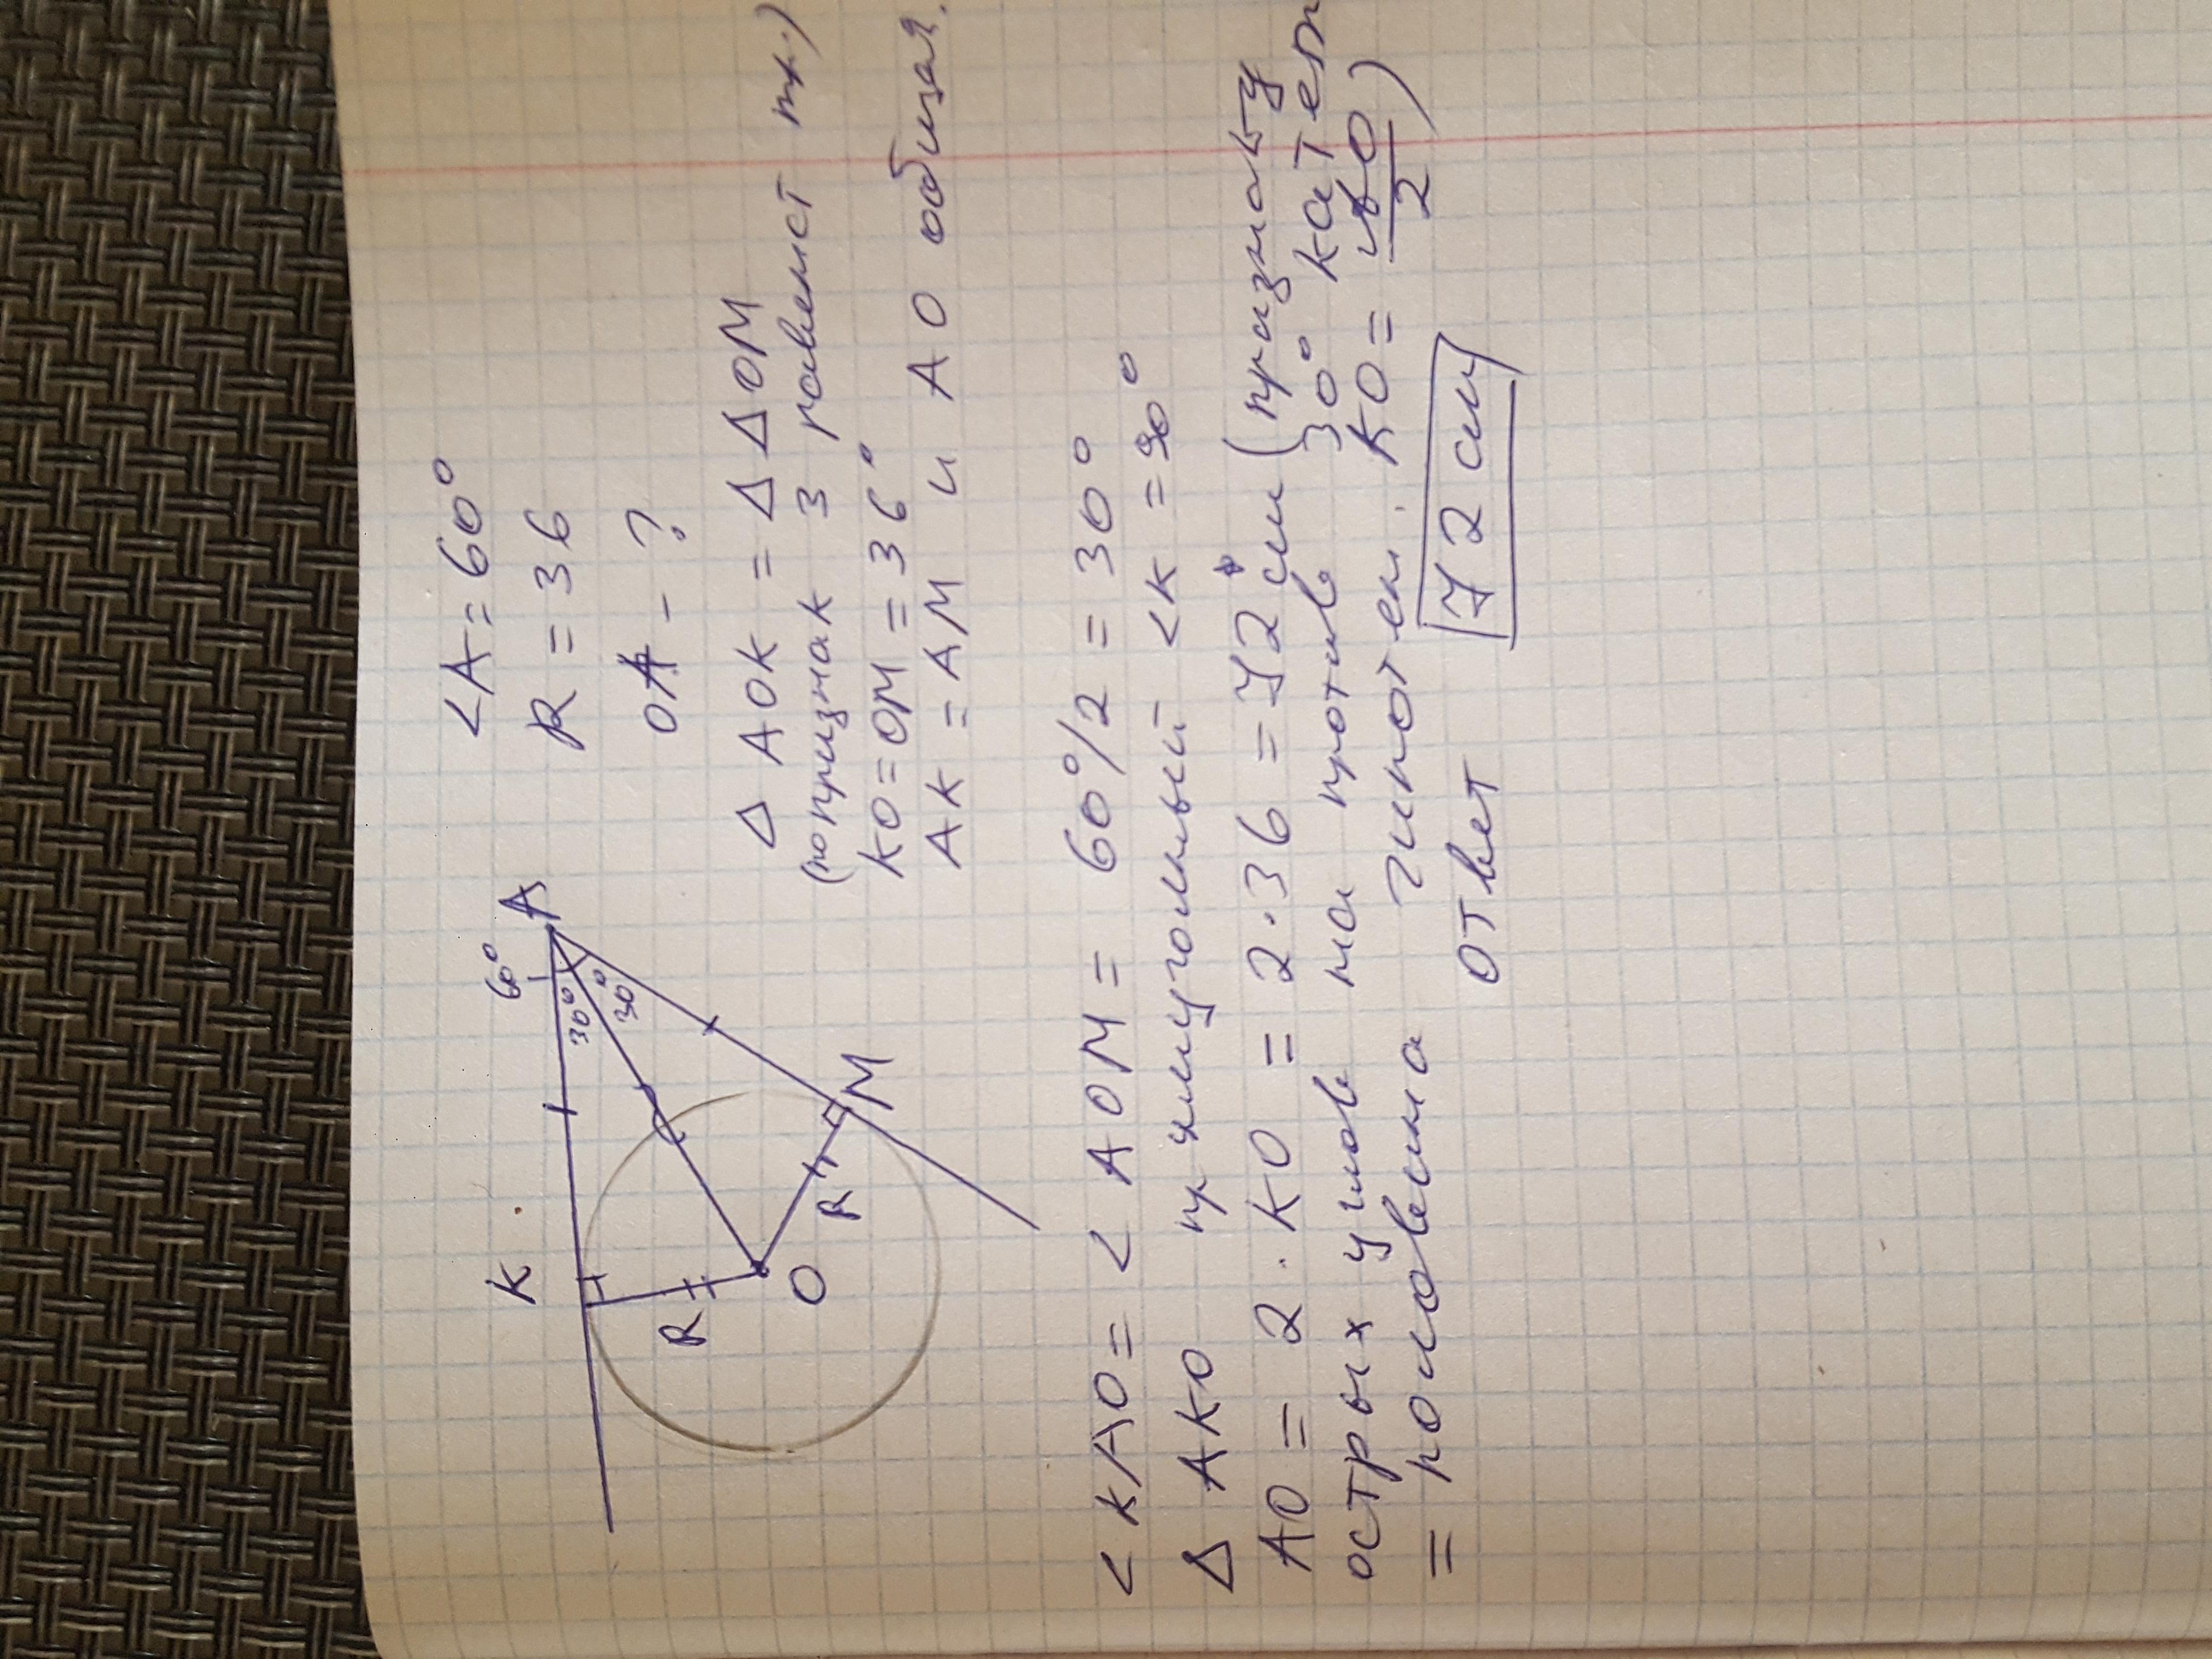 K
60°
A
30°
30°
R
R
O
M
<A = 60°
R = 36
OA - ?
Δ AOK = Δ ΔOM
(по признак 3 равенст тр.)
KO = OM = 36°
AK = AM и AO общая.
< KAO = < AOM = 60°/2 = 30°
Δ AKO прямугольный <K = 90°
AO = 2 · KO = 2 · 36 = 72 см (признаку
острых углов на против 30° катет
= половина гипотен. KO =
2 )
ответ 72 см